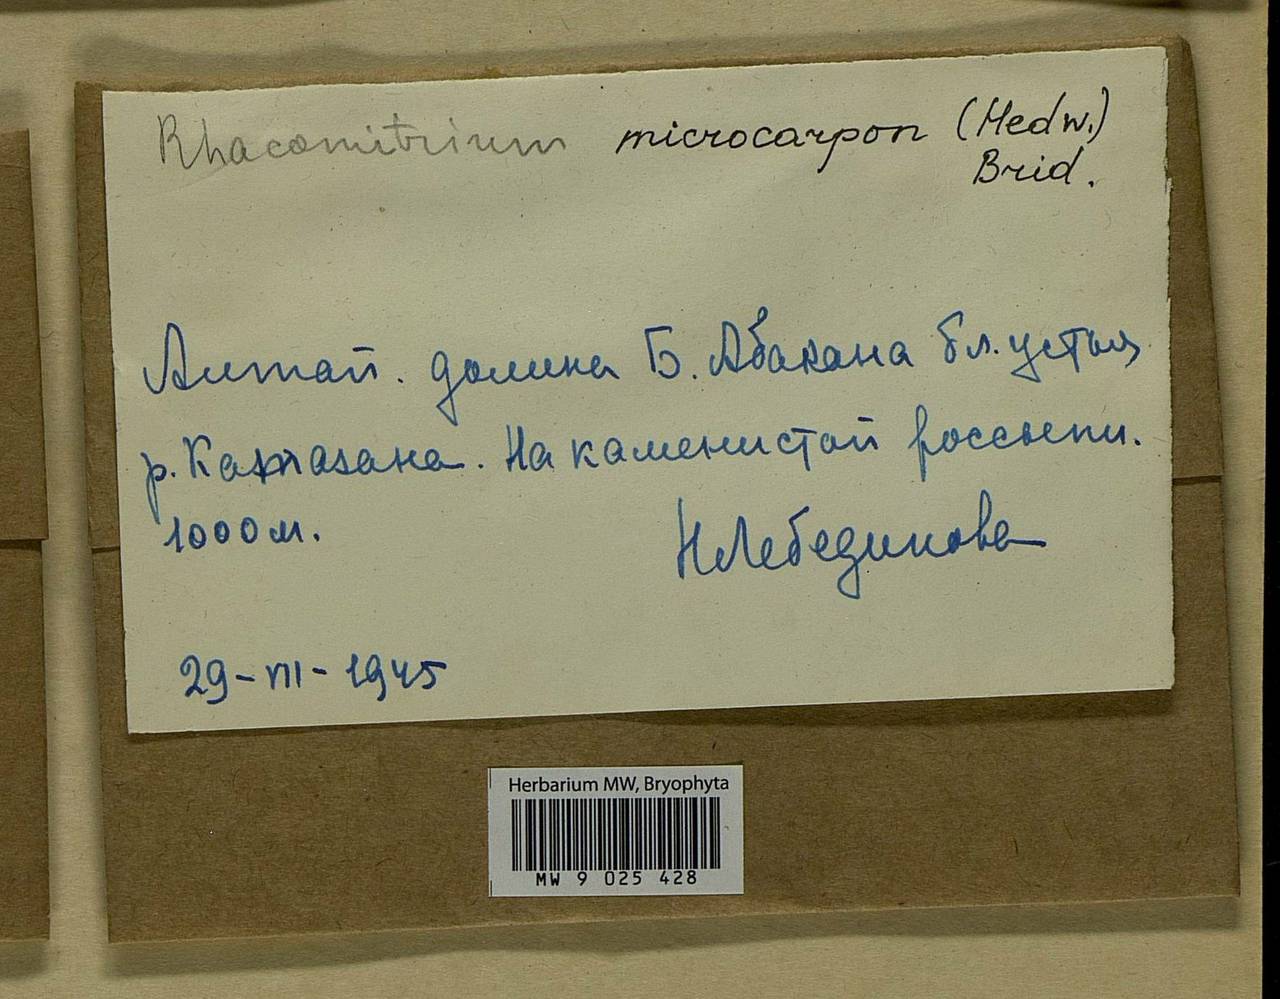 Rhacomitrium microcarpon (Hedw.)
Brid.
Алтай. долина Б. Абакана бл. устья
р. Катазана. На каменистой россыпи.
1000 м.
Н Лебединова
29-VII-1945
Herbarium MW, Bryophyta
MW 9 025 428